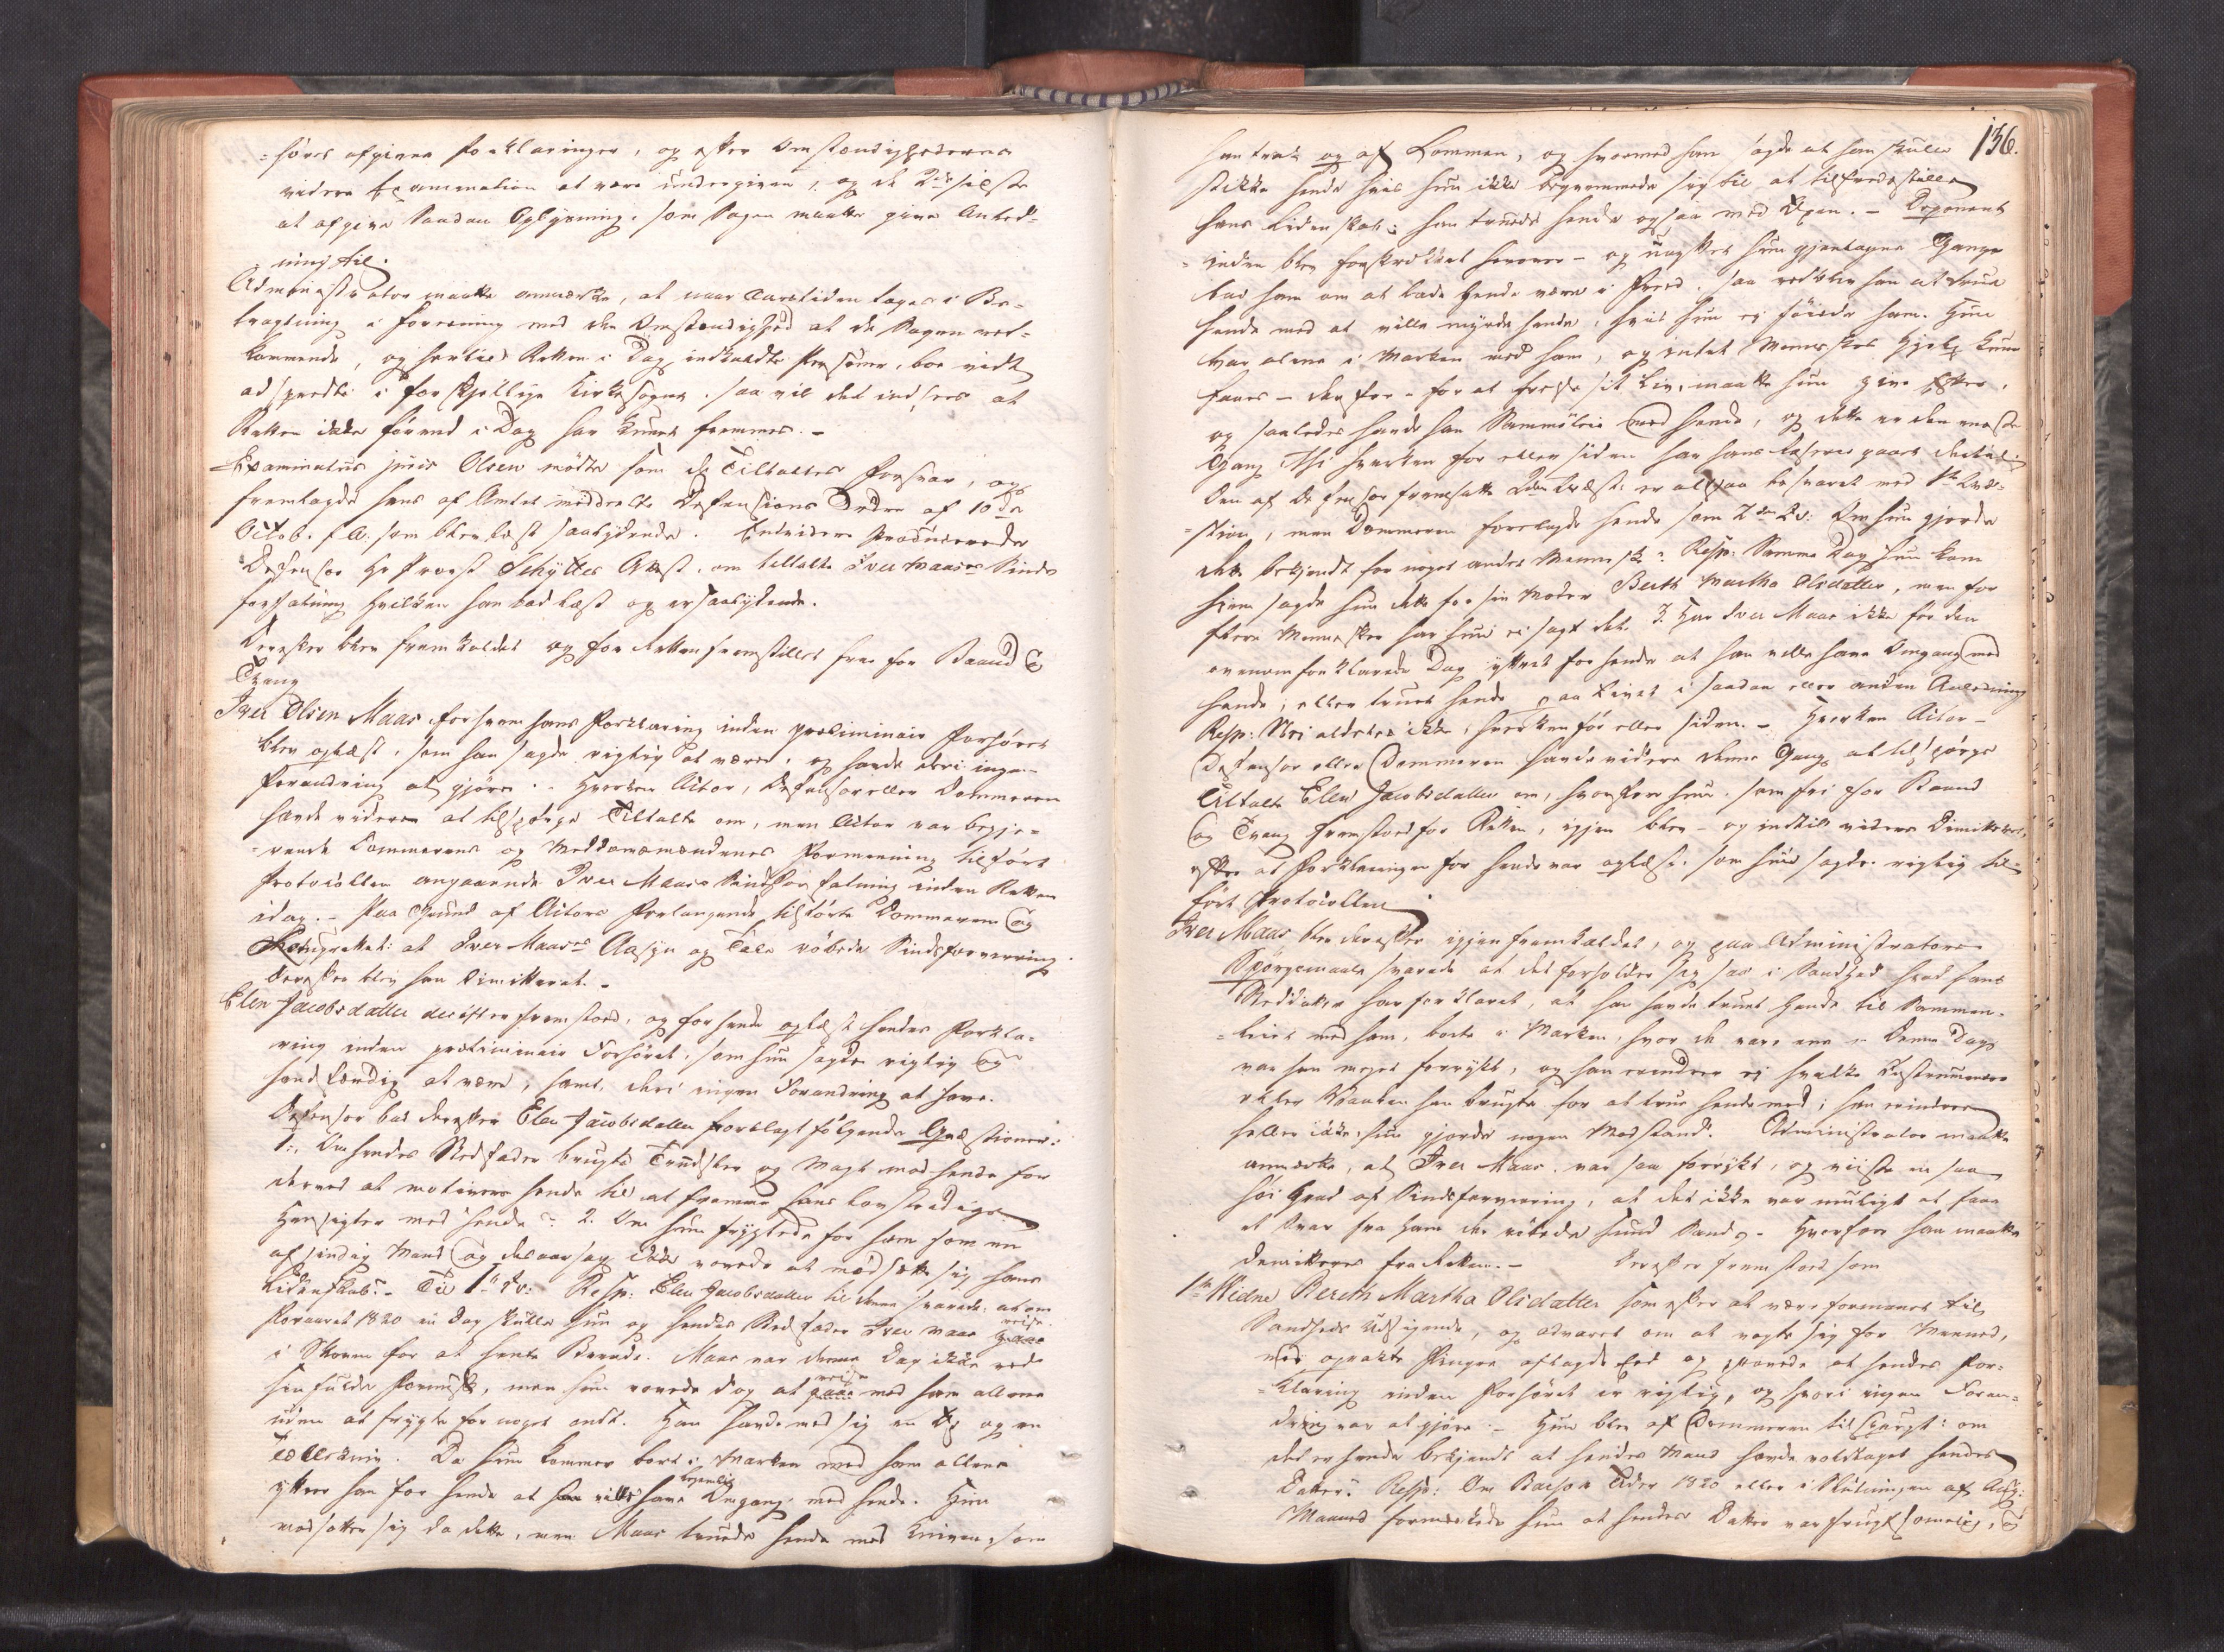 =hörs afgivne Forklaringer, og efter Omstændighederne
videre Examination at være undergiven, og de 2de sidste
at afgive saadan Oplysning, som Sagen maatte give Anled-
ning til.
Administrator maatte anmærke, at naar Aarstiden tages i Be-
tragtning i forening med den Omstændighed at de Sagen ved-
kommende, og hertil Retten i Dag indkaldte Personer, boe vidt
adspredte i forskjellige Kirkesogne, saa vil det indsees at
Retten ikke förend i Dag har kunnet fremmes. –
Examinatus juris Olsen mödte som de Tiltaltes Forsvar, og
fremlagde hans af Amtet meddeelte Defensions Ordre af 10de
Octob. f. A. som blev læst saalydende. Endvidere producerede
Defensor Hr Provst Schyttes Attest, om tiltalte Iver Maases Sinds
forfatning hvilken han bad læst og er saalydende.
Derefter blev fremkaldet og for Retten fremstillet frie for Baand &
Tvang
Iver Olsen Maas forhvem hans Forklaring inden præliminair Forhöret
blev oplæst, som han sagde rigtig at være, og havde deri ingen
Forandring at gjöre. – Hverken Actor, Defensor eller Dommeren
havde videre at tilspørge Tiltalte om, men Actor var begjæ-
=rende Dommerens og Meddomsmændenes Formeening tilfört
Protocollen angaaende Iver Maases Sindsforfatning inden Retten
idag. – Paa Grund af Actors Forlangende tilförte Dommeren og
Meddomsrettet: at Iver Maases Aasyn og Tale röbede Sindsforvirring.
Derefter blev han dimitteret. –
Elen Jacobsdatter derefter fremstoed, og for hende oplæst hendes Forkla-
ring inden præliminair Forhöret, som hun sagde rigtig og
sandfærdig at være, samt, deri ingen Forandring at have.
Defensor bad derefter Elen Jacobsdatter forelagt fölgende Qvæstioner:
1:, Om hendes Stedfader brugte Trudsler og Magt mod hende for
derved at motivere hende til at fremme hans lovstridige
Hensigter med hende? 2. Om hun frygtede for ham som en
afsindig Mand og desaarsag ikke vovede at modsætte sig hans
Lidenskab? – Til 1te Qv: Resp: Elen Jacobsdatter til denne svarede: at om
Foraaret 1820 en Dag skulle hun og hendes Stedfader Iver Maas reise
i Skoven for at hente Brænde. Maas var denne Dag ikke ved
sin fulde Fornuft, men hun vovede dog at reise med ham allene
uden at frygte for noget ondt. Han havde med sig en Öx og en
Tollekniv. Da hun kommer bort i Marken med ham allene
yttrer han for hende at han ville have legemlig Omgang med hende. Hun
modsatte sig da dette, men Maas truede hende med Kniven, som
136.
han trak og af Lommen, og hvormed han sagde at han skulle
stikke hende hvis hun ikke beqvemmede sig til at tilfredsstille
hans Lidenskab: han truede hende ogsaa med Öxen. – Deponent
=inden blev forskrækket herover – og uagtet hun gjentagne Gange
bad ham om at lade hende være i Fred, saa vedblev han at true
hende med at ville myrde hende, hvis hun ej föiede ham. Hun
var alene i Marken med ham, og intet Menneskes Hjelp kunne
faaes – derfor – for at frelse sit Liv, maatte hun give efter,
og saaledes havde han Sammenleie med hende, og dette er den eneste
Gang thi hverken för eller siden har hans Lasterier gaaet dertil.
Den af Defensor fremsatte 2den Qvæst: er altsaa besvaret med 1ste Qvæ-
=stion, men Dommeren forelagde hende som 2den Qv: Om hun gjorde
dette bekjendt for noget andet Menneske? Resp: Samme Dag hun kom
hjem sagde hun dette for sin Moder Berth Martha Olsdatter, men for
flere Mennesker har hun ei sagt det. 3. Har Iver Maas ikke för den
ovenomforklarede Dag yttret for hende at han ville have Omgang med
hende, eller truet hende paa Livet i saadan eller anden Anledning?
Resp: Nei aldeles ikke, hverken för eller siden. – Hverken Actor –
Defensor eller Dommeren havde videre denne Gang at tilspörge
Tiltalte Elen Jacobsdatter om, hvorefter hun, som fri for Baand
og Tvang fremstoed for Retten, igjen blev – og indtil videre Dimitteret,
efter at Forklaringen for hende var oplæst, som hun sagde rigtig til-
fört Protocollen
Iver Maas blev derefter igjen fremkaldet, og paa Administrators
Spörgsmaale svarede at det forholder sig saa i Sandhed hvad hans
Steddatter har forklaret, at han havde truet hende til Sammen-
=leiet med ham, borte i Marken, hvor de vare ene – Denne Dag
var han meget forrykt, og han erindrer ej hvilke Instrumenter
eller Vaaben han brugte for at true hende med; han erindrer
heller ikke, hun gjorde nogen Modstand. Administrator maatte
anmærke, at Iver Maas var saa forrykt, og viiste en saa
höi Grad af Sindsforvirring, at det ikke var muligt at faae
et Svar fra ham der röbede sund Sands. – Hvorfor han maatte
demitteres fra Retten. – Derefter fremstoed som
1te Vidne Bereth Martha Olsdatter som efter at være formanet til
Sandheds Udsigende, og advaret om at vogte sig for Meened,
med oprakte Fingre aflagde Eed og svarede at hendes For-
=klaring inden Forhöret er rigtig, og hvori ingen Foran-
dring var at gjöre. – Hun blev af Dommeren tilspurgt: om
det er hende bekjendt at hendes Mand havde voldtaget hendes
Datter? Resp: Om Baasok Tider 1820 eller i Slutningen af Aug:
Maaned formærkede hun at hendes Datter var frugtsommelig, og